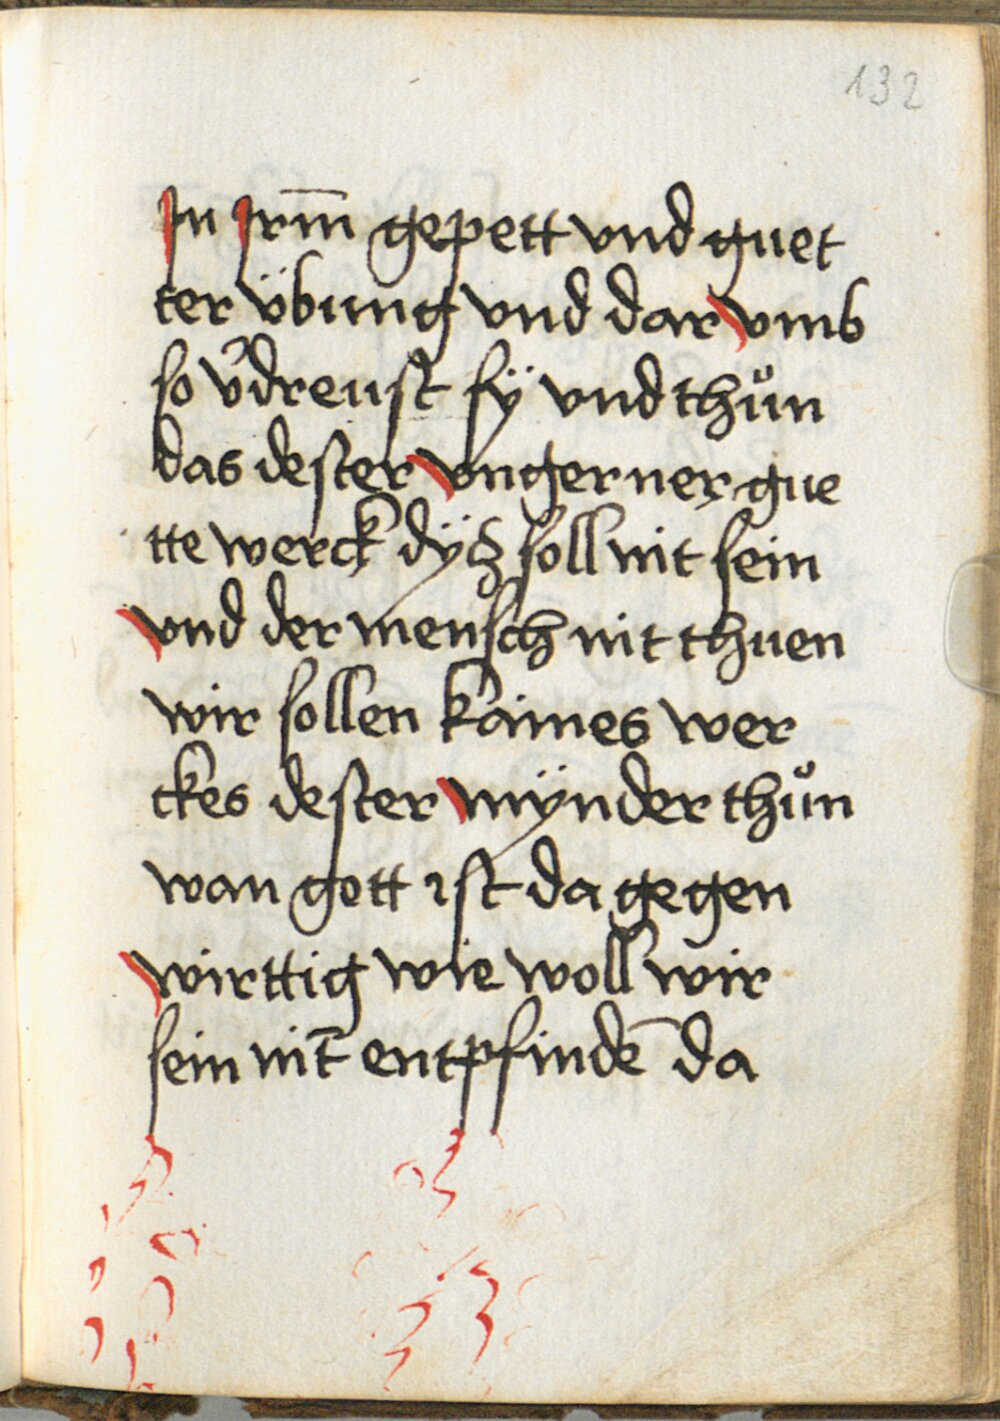 132
Jn Jrm̄ gepett vnd guet
ter übung vnd dar vmb
so v̉dreust sÿ vnd thůn
das dester vngerner gue
tte werck dÿß soll nit sein
vnd der mensch nit thuen
wir sollen kaines wer
ckes dester mÿnder thůn
wan gott ist da gegen
wirttig wie woll wir
sein nit entpfindē da